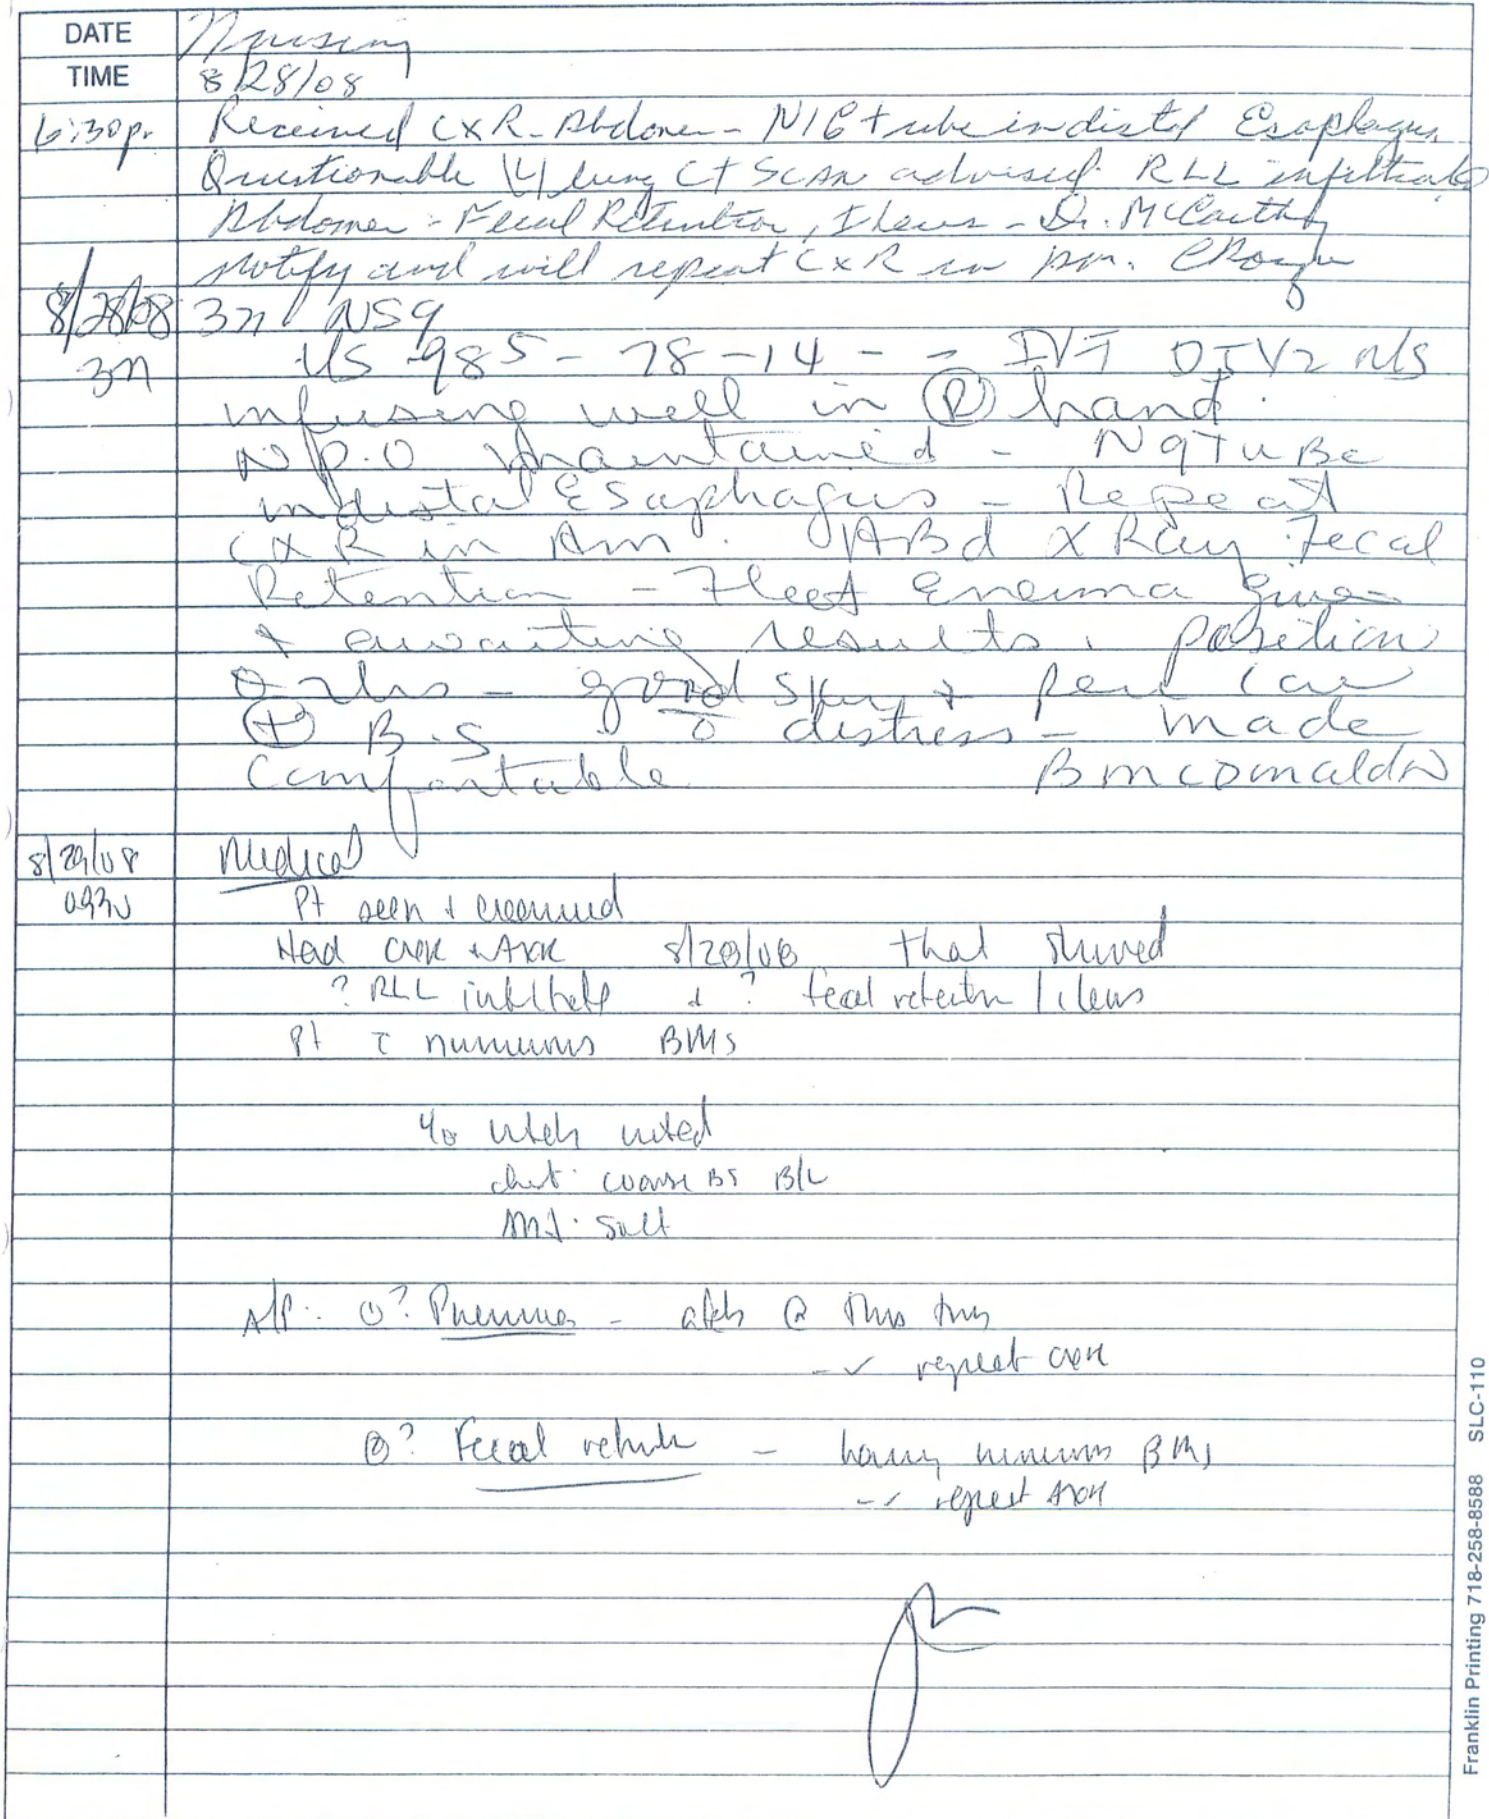 DATE Nursing
TIME 8/28/08
6:30p. Received CXR - Abdomen - N/G tube in distal Esophagus
Questionable (L) lung CT SCAN advised. RLL infiltrate
Abdomen - Fecal Retention, Ileus - Dr. McCarthy
notify and will repeat CXR in
8/28/08 3n NSg
3n VS 985 - 78 - 14 - - IVF N/S
infusing well in (R) hand.
N.P.O maintained - NgTuBe
in distal Esophagus - Repeat
CXR in Am. ABd XRay Fecal
Retention - Fleet Enema given
+ awaiting results. position
- good skin + peri care
(+) B.S distress - made
Comfortable
8/29/08 Medical
Pt seen +
Had CXR + AXR 8/28/08 that showed
? RLL infiltrate + ? fecal retention / ileus
Pt c numerous BMs
noted
chest: coarse BS B/L
soft
A/P: ① ? Pneumonia - @ this time
-✓ repeat CXR
② ? Fecal retention - having numerous BMs
-✓ repeat AXR
Franklin Printing 718-258-8588 SLC-110